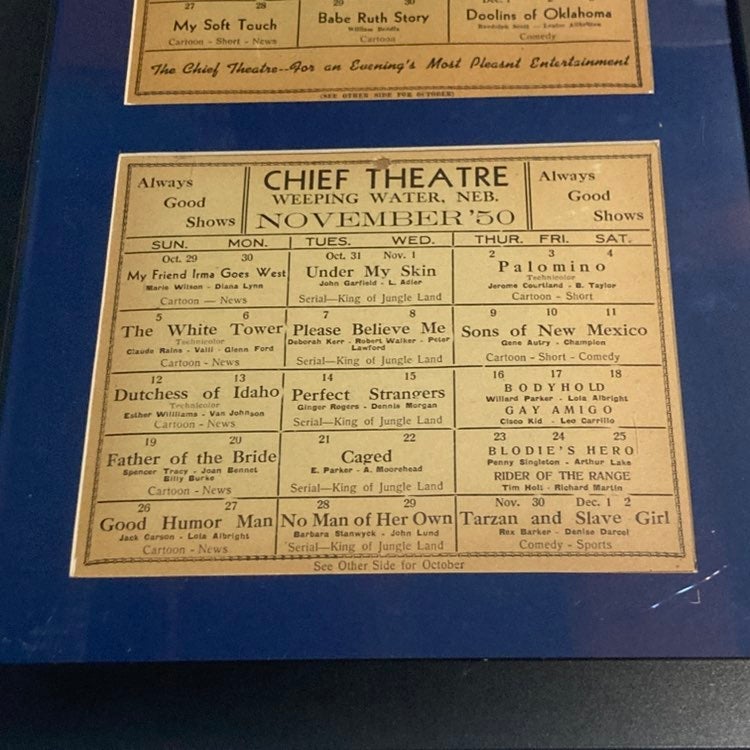 27 28
My Soft Touch
Cartoon - Short - News
29 30
Babe Ruth Story
William Bendix
Cartoon
Dec. 1 2
Doolins of Oklahoma
Randolph Scott - Louise Allbritton
Comedy
The Chief Theatre--For an Evening's Most Pleasnt Entertainment
(SEE OTHER SIDE FOR OCTOBER)
Always
Good
Shows
CHIEF THEATRE
WEEPING WATER, NEB.
NOVEMBER '50
Always
Good
Shows
SUN. MON. TUES. WED. THUR. FRI. SAT.
Oct. 29 30
My Friend Irma Goes West
Marie Wilson - Diana Lynn
Cartoon — News
Oct. 31 Nov. 1
Under My Skin
John Garfield - L. Adler
Serial—King of Jungle Land
2 3 4
Palomino
Technicolor
Jerome Courtland - B. Taylor
Cartoon - Short
5 6
The White Tower
Technicolor
Claude Rains - Valli - Glenn Ford
Cartoon - News
7 8
Please Believe Me
Deborah Kerr - Robert Walker - Peter
Lawford
Serial—King of Jungle Land
9 10 11
Sons of New Mexico
Gene Autry - Champion
Cartoon - Short - Comedy
12 13
Dutchess of Idaho
Technicolor
Esther Williams - Van Johnson
Cartoon - News
14 15
Perfect Strangers
Ginger Rogers - Dennis Morgan
Serial—King of Jungle Land
16 17 18
BODYHOLD
Willard Parker - Lola Albright
GAY AMIGO
Cisco Kid - Leo Carrillo
19 20
Father of the Bride
Spencer Tracy - Joan Bennet
Billy Burke
Cartoon - News
21 22
Caged
E. Parker - A. Moorehead
Serial—King of Jungle Land
23 24 25
BLODIE'S HERO
Penny Singleton - Arthur Lake
RIDER OF THE RANGE
Tim Holt - Richard Martin
26 27
Good Humor Man
Jack Carson - Lola Albright
Cartoon - News
28 29
No Man of Her Own
Barbara Stanwyck - John Lund
Serial—King of Jungle Land
Nov. 30 Dec. 1 2
Tarzan and Slave Girl
Rex Barker - Denise Darcel
Comedy - Sports
See Other Side for October